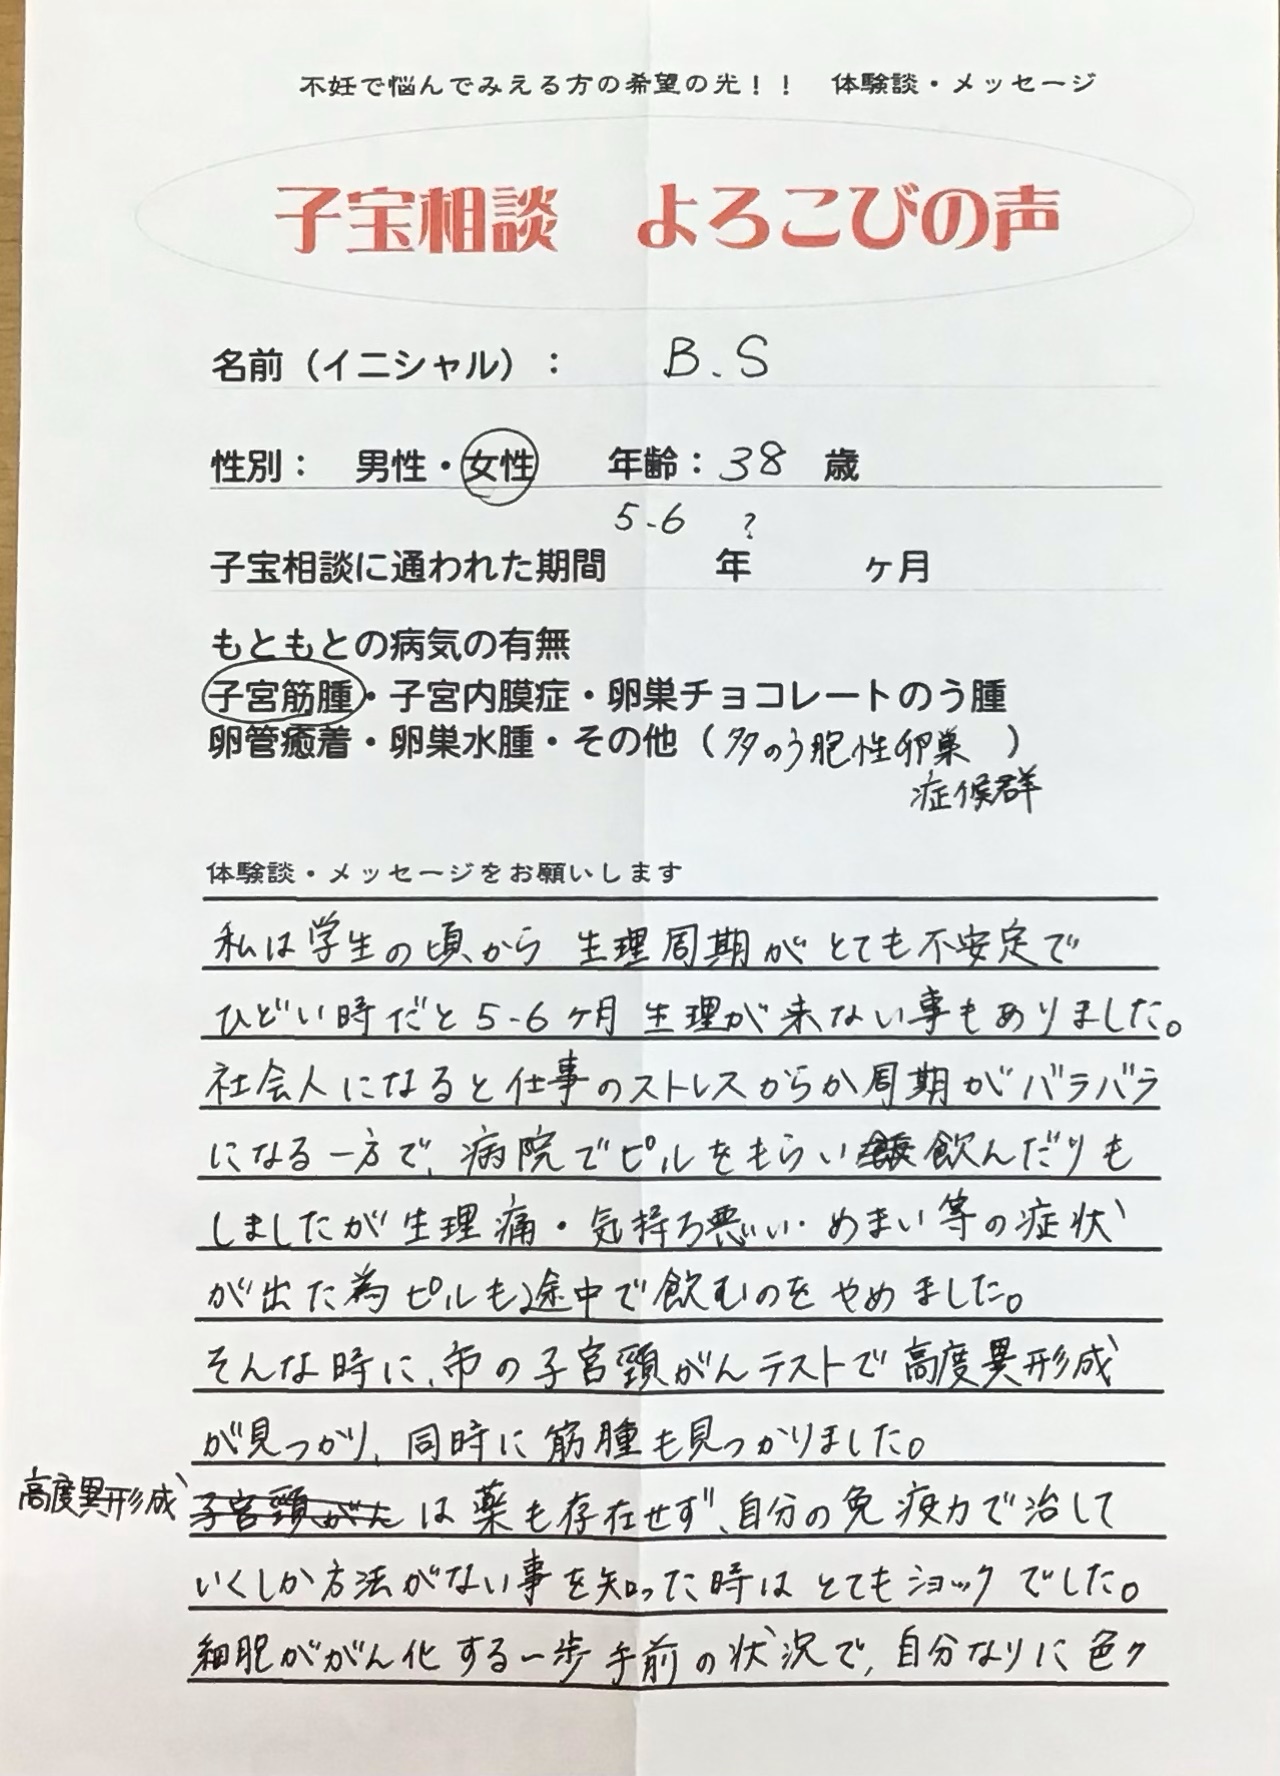 不妊で悩んでみえる方の希望の光！！　体験談・メッセージ
子宝相談　よろこびの声
名前（イニシャル）：　B.S
性別：　男性・女性　年齢：38歳
5-6　?
子宝相談に通われた期間　年　ヶ月
もともとの病気の有無
子宮筋腫・子宮内膜症・卵巣チョコレートのう腫
卵管癒着・卵巣水腫・その他（多のう胞性卵巣）
症候群
体験談・メッセージをお願いします
私は学生の頃から 生理周期がとても不安定で
ひどい時だと5-6ヶ月生理が来ない事もありました。
社会人になると仕事のストレスからか周期がバラバラ
になる一方で、病院でピルをもらい飲んだりも
しましたが生理痛・気持ち悪い・めまい等の症状
が出た為ピルも途中で飲むのをやめました。
そんな時に、市の子宮頸がんテストで高度異形成
が見つかり、同時に筋腫も見つかりました。
高度異形成
子宮頸がんは薬も存在せず、自分の免疫力で治して
いくしか方法がない事を知った時はとてもショックでした。
細胞ががん化する一歩手前の状況で、自分なりに色々